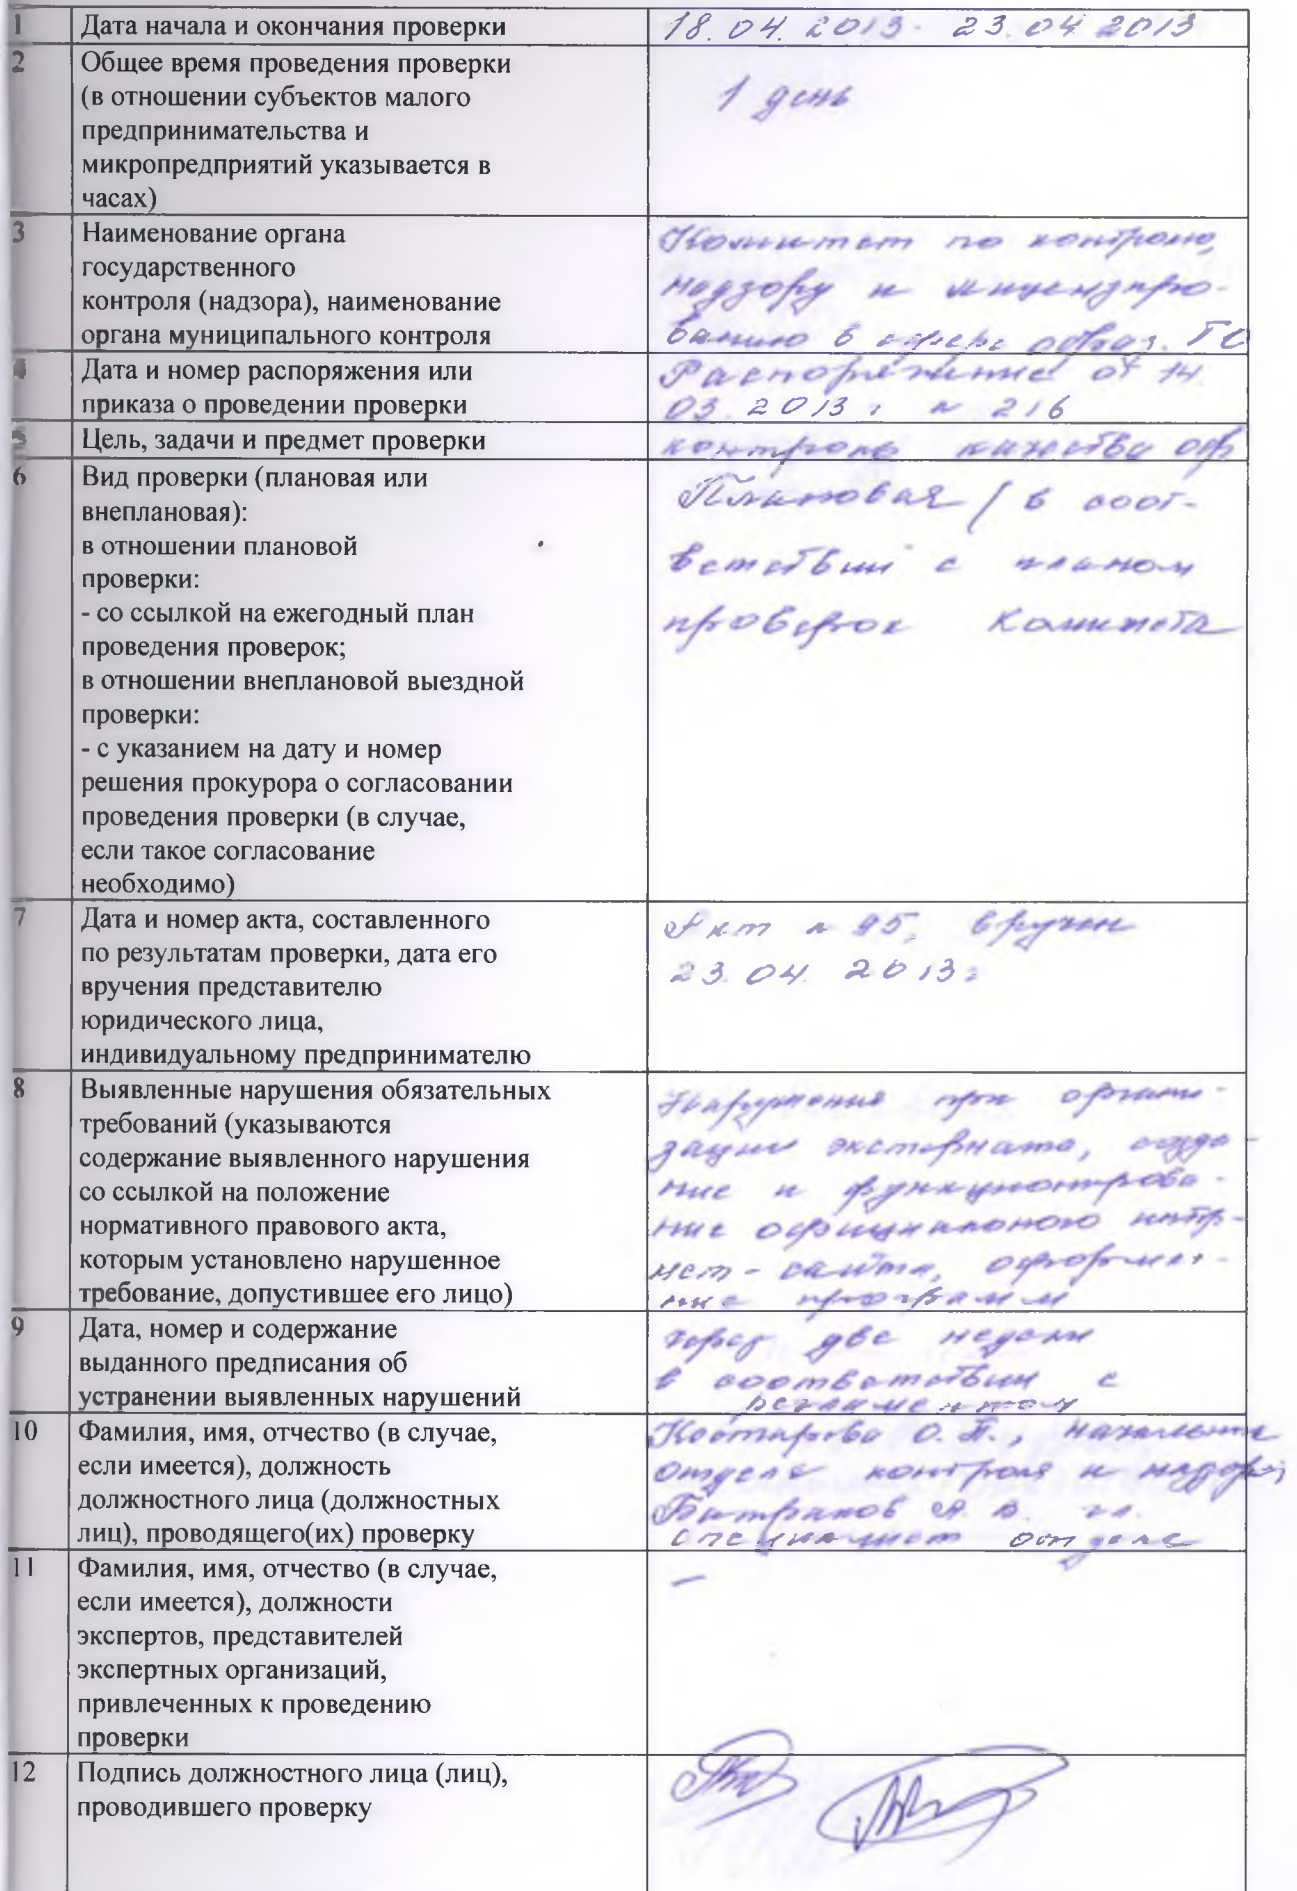 1 Дата начала и окончания проверки 18.04.2013 - 23.04.2013
2 Общее время проведения проверки
(в отношении субъектов малого
предпринимательства и
микропредприятий указывается в
часах)
1 день
3 Наименование органа
государственного
контроля (надзора), наименование
органа муниципального контроля
Комитет по контролю,
надзору и лицензиро-
ванию в сфере образ. ГО
4 Дата и номер распоряжения или
приказа о проведении проверки
Распоряжение от 14.
03.2013г № 216
5 Цель, задачи и предмет проверки
контроль качества обр
6 Вид проверки (плановая или
внеплановая):
в отношении плановой
проверки:
- со ссылкой на ежегодный план
проведения проверок;
в отношении внеплановой выездной
проверки:
- с указанием на дату и номер
решения прокурора о согласовании
проведения проверки (в случае,
если такое согласование
необходимо)
Плановая / в соот-
ветствии с планом
проверок Комитета
7 Дата и номер акта, составленного
по результатам проверки, дата его
вручения представителю
юридического лица,
индивидуальному предпринимателю
Акт № 95, вручен
23.04.2013г
8 Выявленные нарушения обязательных
требований (указываются
содержание выявленного нарушения
со ссылкой на положение
нормативного правового акта,
которым установлено нарушенное
требование, допустившее его лицо)
Нарушения при органи-
зации экстерната, созда-
ние и функционирова-
ние официального интер-
нет-сайта, оформле-
ние программ
9 Дата, номер и содержание
выданного предписания об
устранении выявленных нарушений
через две недели
в соответствии с
регламентом
10 Фамилия, имя, отчество (в случае,
если имеется), должность
должностного лица (должностных
лиц), проводящего(их) проверку
О. П., начальник
отдела контроля и надзора,
А. В. гл.
специалист отдела
11 Фамилия, имя, отчество (в случае,
если имеется), должности
экспертов, представителей
экспертных организаций,
привлеченных к проведению
проверки
–
12 Подпись должностного лица (лиц),
проводившего проверку